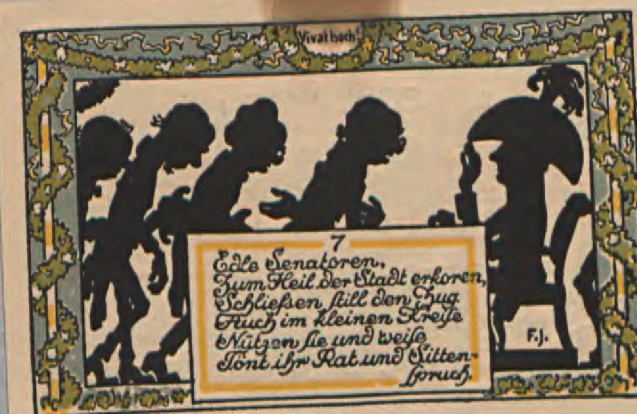 Vivat hoch!
7
Edle Senatoren,
Zum Heil der Stadt erkoren,
Schließen still den Zug
Auch im kleinen Kreise
Nützen sie und weise
Tönt ihr Rat und Sitten-
spruch.
F.J.